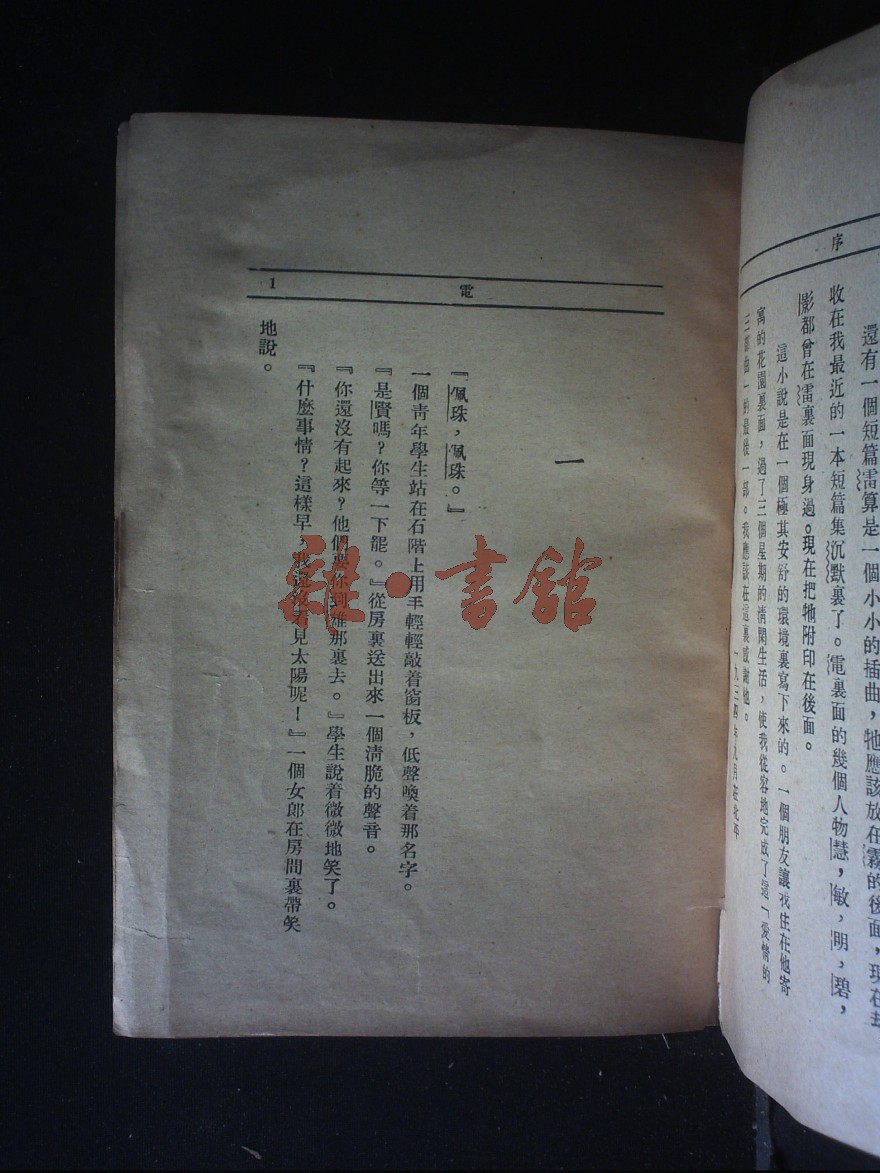 序
還有一個短篇雷算是一個小小的插曲，牠應該放在霧的後面，現在却
收在我最近的一本短篇集沉默裏了。電裏面的幾個人物慧，敏，明，碧，
影都曾在雷裏面現身過。現在把牠附印在後面。
這小說是在一個極其安舒的環境裏寫下來的。一個朋友讓我住在他寄
寓的花園裏面，過了三個星期的清閑生活，使我從容地完成了這「愛情的
三部曲」的最後一部。我應該在這裏感謝他。
一九三四年九月在北平
電
1
一
『佩珠，佩珠。』
一個青年學生站在石階上用手輕輕敲着窗板，低聲喚着那名字。
『是賢嗎？你等一下罷。』從房裏送出來一個清脆的聲音。
『你還沒有起來？他們要你到雄那裏去。』學生說着微微地笑了。
『什麼事情？這樣早，我還沒看見太陽呢！』一個女郎在房間裏帶笑
地說。
雜·書館